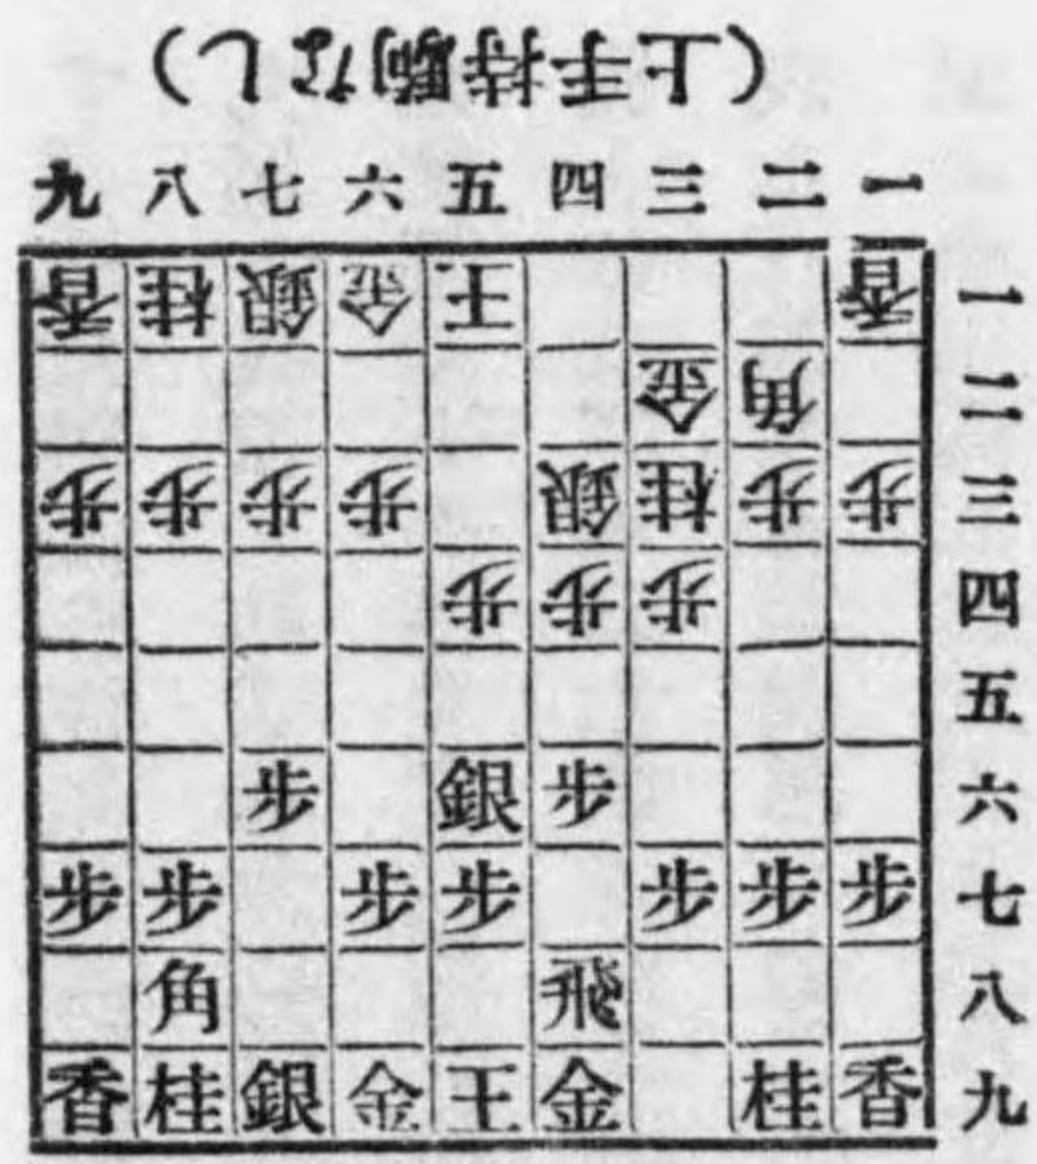 (上手持駒なし)
九 八 七 六 五 四 三 二 一
香 桂 銀 金 王 香 一
金 角 二
歩 歩 歩 歩 銀 桂 歩 歩 三
歩 歩 歩 四
五
歩 銀 歩 六
歩 歩 歩 歩 歩 歩 歩 七
角 飛 八
香 桂 銀 金 王 金 桂 香 九